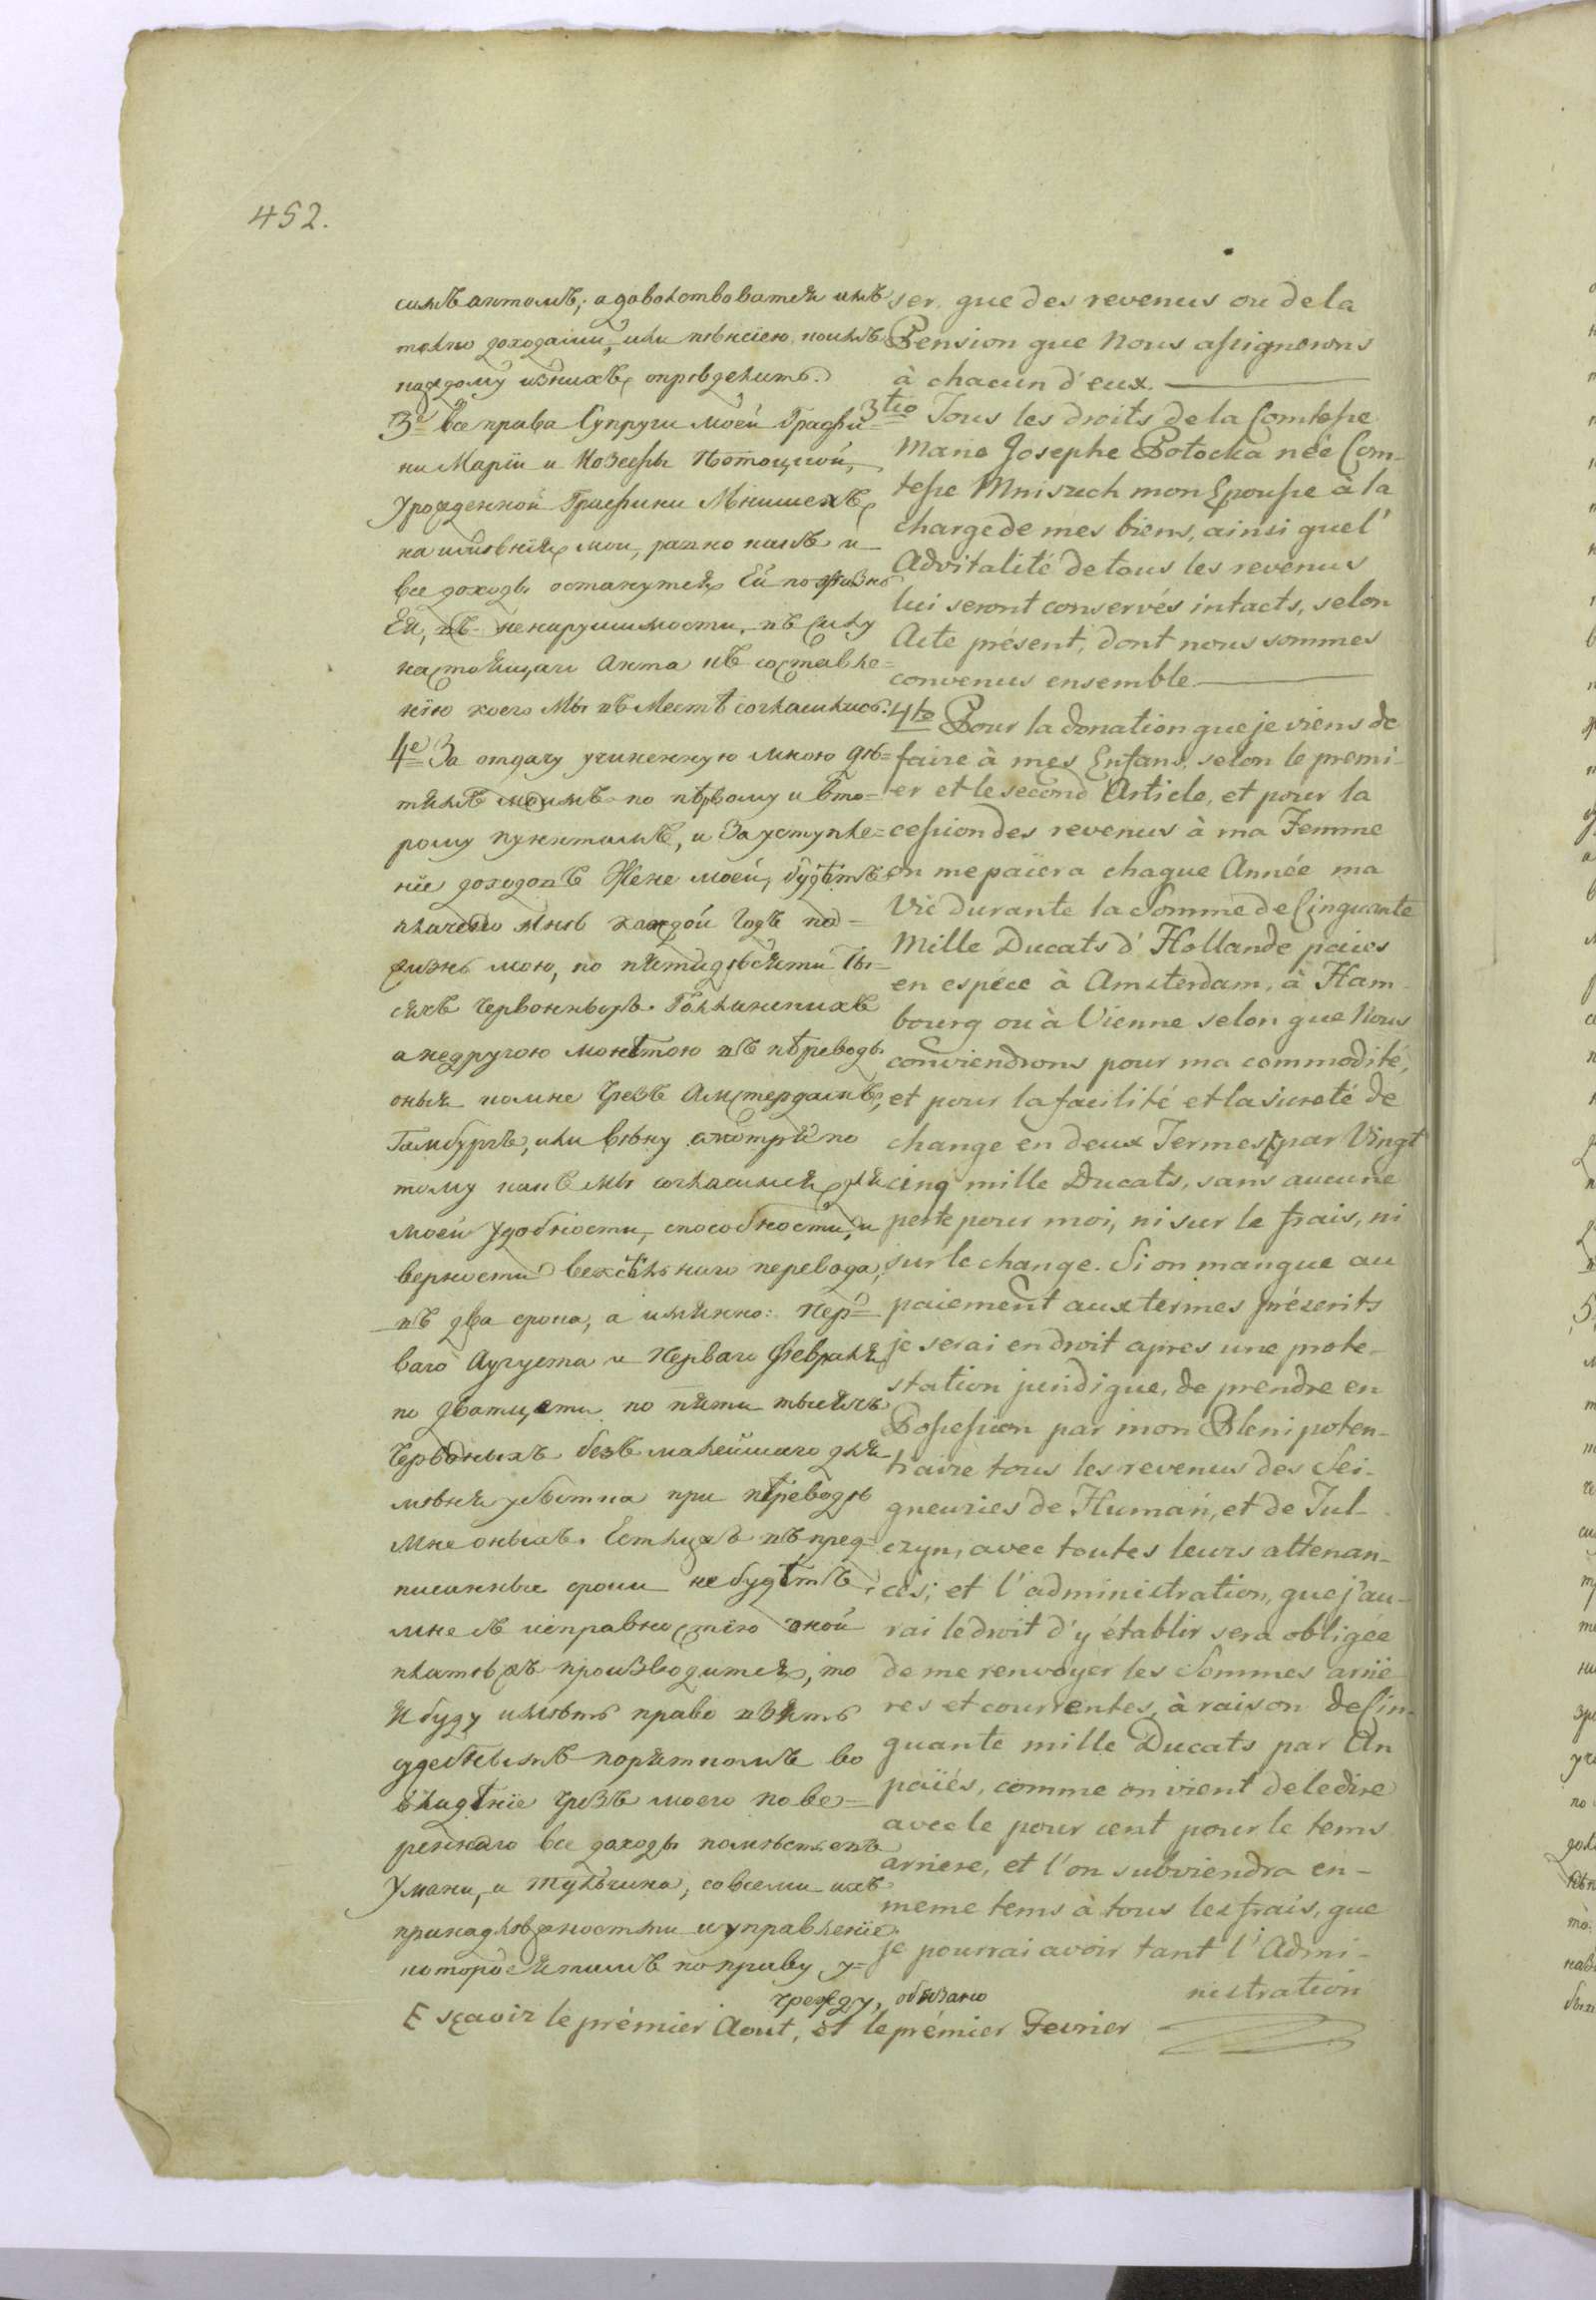 452.
симъ актомъ; а довольствоватся имъ
токмо доходами, или пѣнсіею, какъ
каждому изнихъ опрѣделитъ.
3е все права Супруги моей Графи=
ни Маріи и Иозефы Потоцкой,
урожденной Графини Мнишехъ,
на имѣнія мои, равно какъ и
все доходы останутся Ей пожизнь
Ей, въ ненарушимости, въ силу
настоящаго Акта въ составле=
нію коего Мы въместѣ согласились.
4е За отдачу учиненную мною дѣ=
тямъ моимъ по пѣрвому и вто=
рому пунктамъ, и За уступле=
ніе доходовъ Жене моей, будѣтъ
плачено мнѣ каждой Годъ по
жизнь мою, по пятидѣсяти ты=
сячъ червонныхъ Голланскихъ
а недругою монѣтою въ пѣреводъ
оныя комне чрезъ Амстердамъ,
Гамбургъ, или вѣну смотря по
тому какъ мы согласимся для
моей удобности, способности, и
верности вексѣльнаго перевода,
въ два срока, а имянно: Пер=
ваго Аугуста и Перваго Февраля
по дватцети по пяти тысячъ
Червоныхъ безъ малейшаго для
мѣня убытка при пѣреводѣ
мне оныхъ. Естлижъ въ пред=
писанные сроки небудѣтъ
мне съ исправностію оной
платѣжъ производится, то
Я буду имѣть право взять
судебнымъ порядкомъ во
владѣніе чрезъ моего пове=
реннаго все доходы помѣстьевъ
Умани, и Тульчина, со всеми ихъ
принадлѣжностьми и управленіе
которое я тамъ по праву у=
чрежду, обязано
ser que des revenus ou de la
Pension que Nous assignerons
à chacun d'eux.
3tio Tous les droits de la Comtesse
Marie Josephe Potocka née Com-
tesse Mniszech mon Epousse à la
charge de mes biens, ainsi que l'
Advitalité de tous les revenus
lui seront conservés intacts, selon
Acte présent, dont nous sommes
convenus ensemble.
4to Pour la donation que je viens de
faire à mes Enfans, selon le premi-
er et le second Article, et pour la
cession des revenus à ma Femme
on me païera chaque Année ma
Vie durante la Somme de Cinquante
Mille Ducats d'Hollande païes
en espéce à Amsterdam, à Ham-
bourg ou à Vienne selon que Nous
conviendrons pour ma commodité,
et pour la facilité et la sureté de
change en deux Termes E par Vingt
cinq mille Ducats, sans aucune
perte pour moi, ni sur le frais, ni
sur le change. Si on manque au
paiement aux termes préscrits
je serai en droit apres une prote-
station juridique, de prendre en
Possession par mon Plenipoten-
tiaire tous les revenus des Sei-
gneuries de Humań, et de Tul-
czyn, avec toutes leurs attenan-
ces; et l'administration, que j'au-
rai le droit d'y établir sera obligée
de me renvoyer les Sommes arriè
res et courrentes, à raison de Cin-
quante mille Ducats par An
païés, comme on vient de le dire
avec le pour cent pour le tems
arriere, et l'on subviendra en-
meme tems à tous les frais, que
je pourrai avoir tant l'Admi-
nistration
E sçavoir le prémier Aout, et le prémier Fevrier